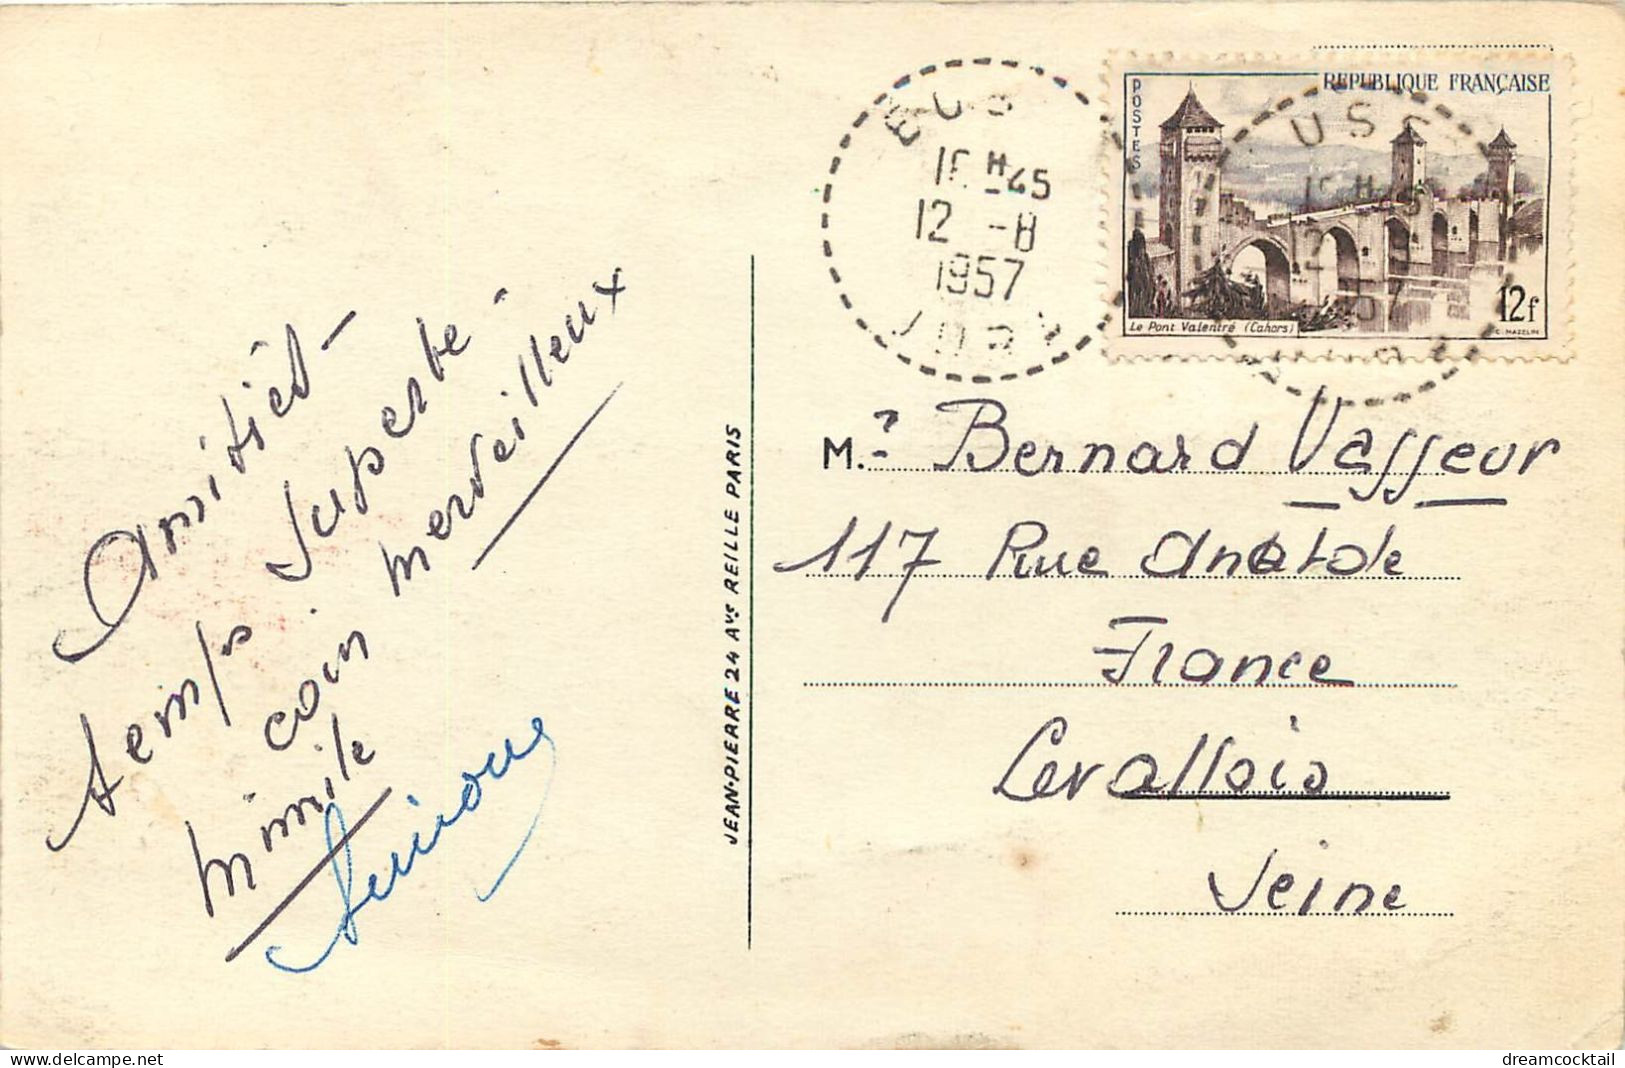 Amitiés -
temps superbe -
coin merveilleux
Mimile
JEAN-PIERRE 24 AVE REILLE PARIS
12 -8
1957
JURA
REPUBLIQUE FRANÇAISE
POSTES
12f
Le Pont Valentré (Cahors)
C. MAZELIN
Mr Bernard Vasseur
117 Rue Anatole
France
Levallois
Seine
delcampe.net
dreamcocktail